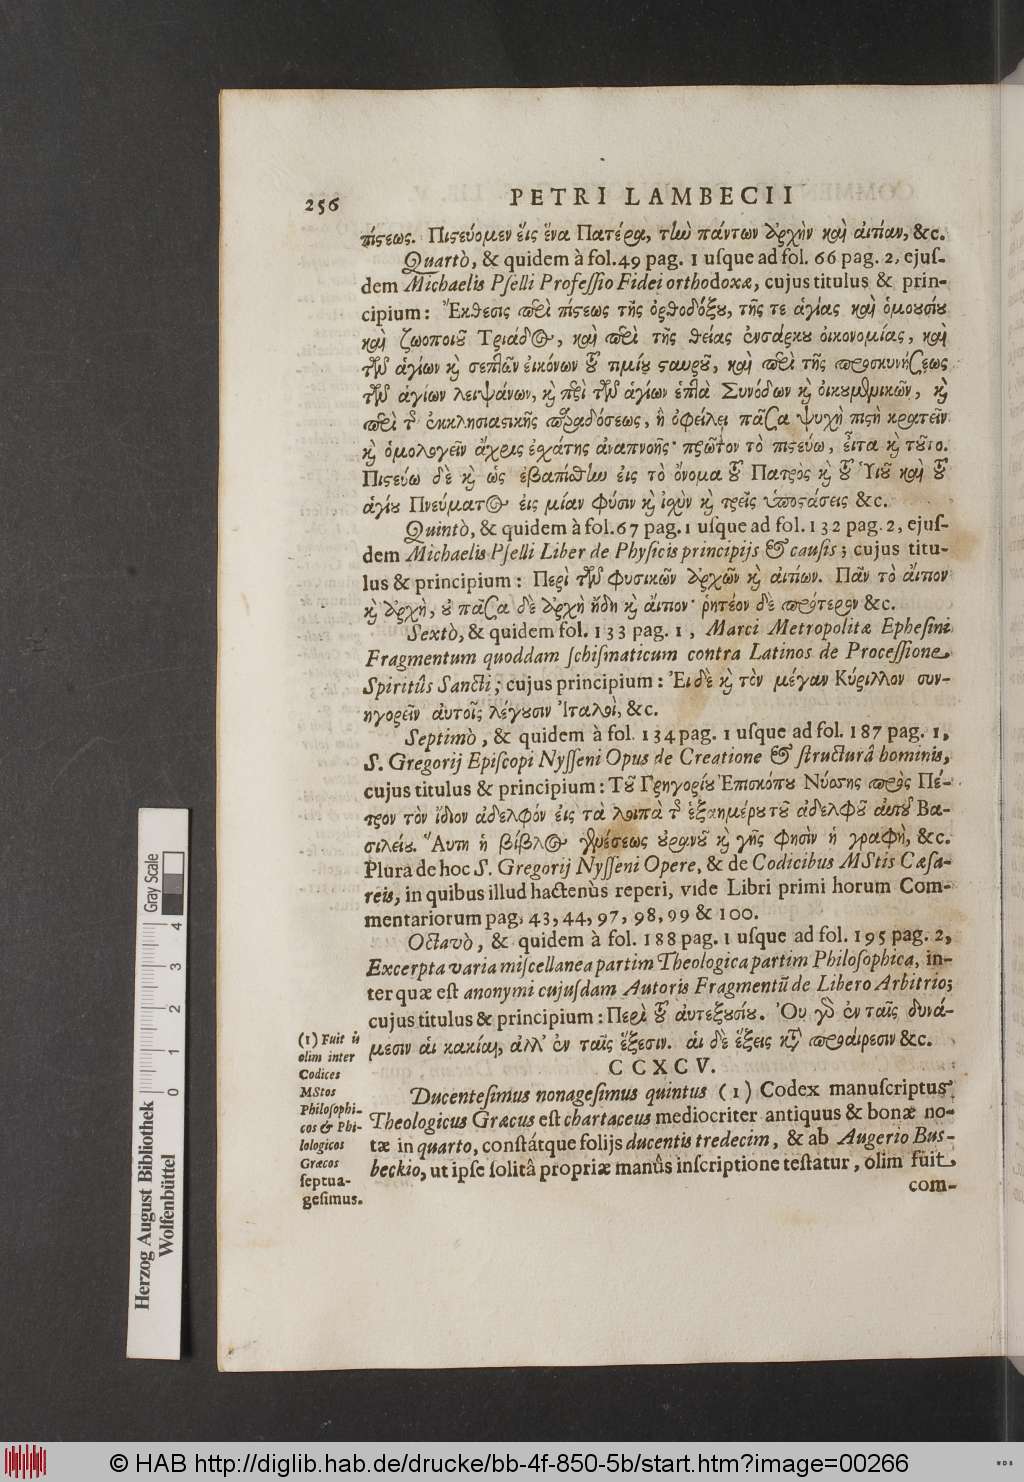 256 PETRI LAMBECII
πίςεως. Πιςεύομεν εἵς ἕνα Πατέρα, τὼ πάντων ἀρχὴν καὶ αἰτίαν, &c.
Quartò, & quidem à fol. 49 pag. 1 uſque ad fol. 66 pag. 2, ejuſ-
dem Michaelis Pſelli Profeſſio Fidei orthodoxæ, cujus titulus & prin-
cipium: Ἔκθεσις περὶ πίςεως τῆς ὀρθοδόξου, τῆς τε ἁγίας καὶ ὁμουσίου
καὶ ζωοποιοῦ Τριάδος, καὶ περὶ τῆς θείας ἐνσάρκου οἰκονομίας, καὶ
τῶν ἁγίων κὶ σεπτῶν εἰκόνων τοῦ τιμίου ςαυροῦ, καὶ περὶ τῆς προσκυνήσεως
τῶν ἁγίων λειψάνων, κὶ περὶ τῶν ἁγίων ἑπτὰ Συνόδων κὶ οἰκουμενικῶν, κὶ
περὶ τῆς ἐκκλησιαςικῆς παραδόσεως, ἣ ὀφείλει πᾶσα ψυχὴ πιςὴ κρατεῖν
κὶ ὁμολογεῖν ἄχρις ἐσχάτης ἀναπνοῆς· πρῶτον τὸ πιςεύω, εἶτα κὶ τοῦτο.
Πιςεύω δὲ κὶ ὡς ἐβαπτίσθην εἰς τὸ ὄνομα τοῦ Πατρὸς κὶ τοῦ Ὑιοῦ καὶ τοῦ
ἁγίου Πνεύματος εἰς μίαν φύσιν κὶ ἰσχὺν κὶ τρεῖς ὑποςάσεις &c.
Quintò, & quidem à fol. 67 pag. 1 uſque ad fol. 132 pag. 2, ejuſ-
dem Michaelis Pſelli Liber de Phyſicis principijs & cauſis; cujus titu-
lus & principium: Περὶ τῶν φυσικῶν ἀρχῶν κὶ αἰτίων. Πᾶν τὸ αἴτιον
κὶ ἀρχὴ, οὐ πᾶσα δὲ ἀρχὴ ἤδη κὶ αἴτιον· ῥητέον δὲ πρότερον &c.
Sextò, & quidem fol. 133 pag. 1, Marci Metropolitæ Epheſini
Fragmentum quoddam ſchiſmaticum contra Latinos de Proceſſione
Spiritûs Sancti; cujus principium: Ἐι δὲ κὶ τὸν μέγαν Κύριλλον συν-
ηγορεῖν αὐτοῖς λέγουσιν Ἰταλοὶ, &c.
Septimò, & quidem à fol. 134 pag. 1 uſque ad fol. 187 pag. 1,
S. Gregorij Epiſcopi Nyſſeni Opus de Creatione & ſtructurâ hominis,
cujus titulus & principium: Τοῦ Γρηγορίου Ἐπισκόπου Νύσσης πρὸς Πέ-
τρον τὸν ἴδιον ἀδελφόν εἰς τὰ λοιπὰ τῆς ἑξαημέρου τοῦ ἀδελφοῦ αὐτοῦ Βα-
σιλείου. Ἅυτη ἡ βίβλος γενέσεως οὐρανοῦ κὶ γῆς φησὶν ἡ γραφὴ, &c.
Plura de hoc S. Gregorij Nyſſeni Opere, & de Codicibus MStis Cæſa-
reis, in quibus illud hactenùs reperi, vide Libri primi horum Com-
mentariorum pag. 43, 44, 97, 98, 99 & 100.
Octavò, & quidem à fol. 188 pag. 1 uſque ad fol. 195 pag. 2,
Excerpta varia miſcellanea partim Theologica partim Philoſophica, in-
ter quæ eſt anonymi cujuſdam Autoris Fragmentũ de Libero Arbitrio;
cujus titulus & principium: Περὶ τοῦ αὐτεξουσίου. Ὀυ γὰρ ἐν ταῖς δυνά-
μεσιν αἱ κακίαι, ἀλλ' ἐν ταῖς ἕξεσιν. αἱ δὲ ἕξεις κατὰ προαίρεσιν &c.
CCXCV.
Ducenteſimus nonageſimus quintus (1) Codex manuſcriptus
Theologicus Græcus eſt chartaceus mediocriter antiquus & bonæ no-
tæ in quarto, conſtátque folijs ducentis tredecim, & ab Augerio Buſ-
beckio, ut ipſe ſolitâ propriæ manûs inſcriptione teſtatur, olim fuit
com-
(1) Fuit is
olim inter
Codices
MStos
Philoſophi-
cos & Phi-
lologicos
Græcos
ſeptua-
geſimus.
Herzog August Bibliothek
Wolfenbüttel
0 1 2 3 4
Gray Scale
© HAB http://diglib.hab.de/drucke/bb-4f-850-5b/start.htm?image=00266